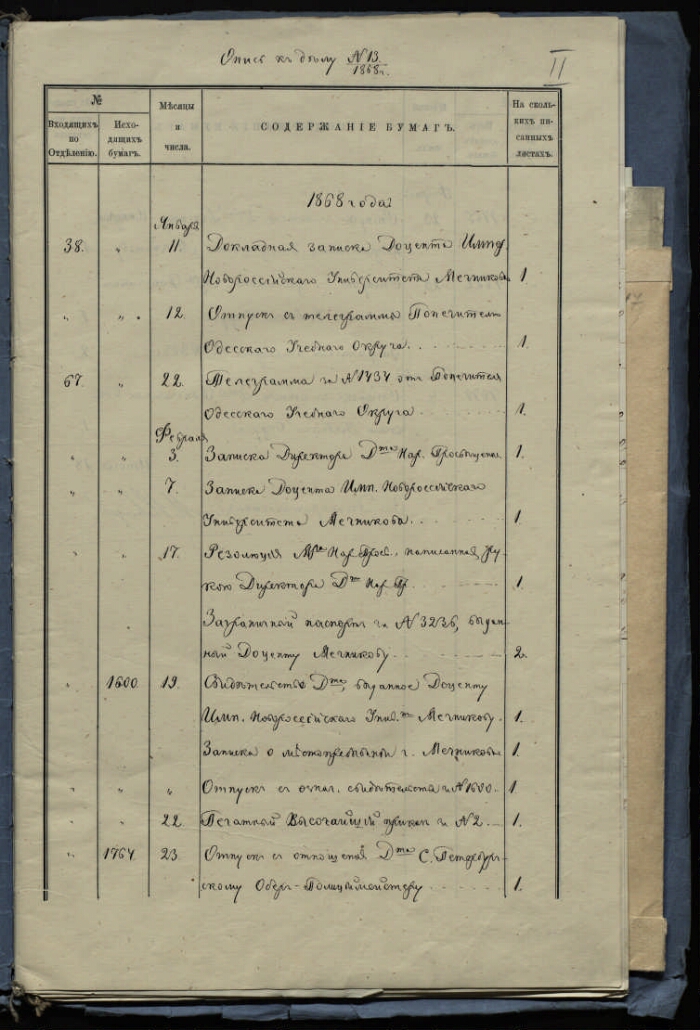 Опись къ дѣлу N 13.
1868 г.
II
№
Входящихъ по Отдѣленію.
Исходящихъ бумагъ.
Мѣсяцы и числа.
СОДЕРЖАНІЕ БУМАГЪ.
На сколькихъ писанныхъ листахъ.
1868 года
Января
38. " 11. Докладная записка Доцента Импер.
Новороссійскаго Университета Мечникова 1
" " 12. Отпускъ съ телеграммы Попечителю
Одесскаго Учебнаго Округа 1.
67. " 22. Телеграмма за N 1434 отъ Попечителя
Одесскаго Учебнаго Округа 1.
Февраля
" " 3. Записка Директора Дта Нар. Просвѣщенія 1.
" " 7. Записка Доцента Имп. Новороссійскаго
Университета Мечникова 1.
" " 17. Резолюція Мра Нар. Просв., написанная ру-
кою Директора Дта Нар. Пр. 1.
Заграничный паспортъ за N 3236, выдан-
ный Доценту Мечникову 2.
" 1600. 19. Свидѣтельство Дта, выданное Доценту
Имп. Новороссійскаго Унив.та Мечникову. 1.
Записка о мѣстопребываніи г. Мечникова 1.
" " " Отпускъ съ означ. свидѣтельства за N 1600. 1.
" " 22. Печатный Высочайшій приказъ за N 2. 1.
" 1764. 23. Отпускъ съ отношенія Дта С. Петербург-
скому Оберъ-Полицыймейстеру 1.